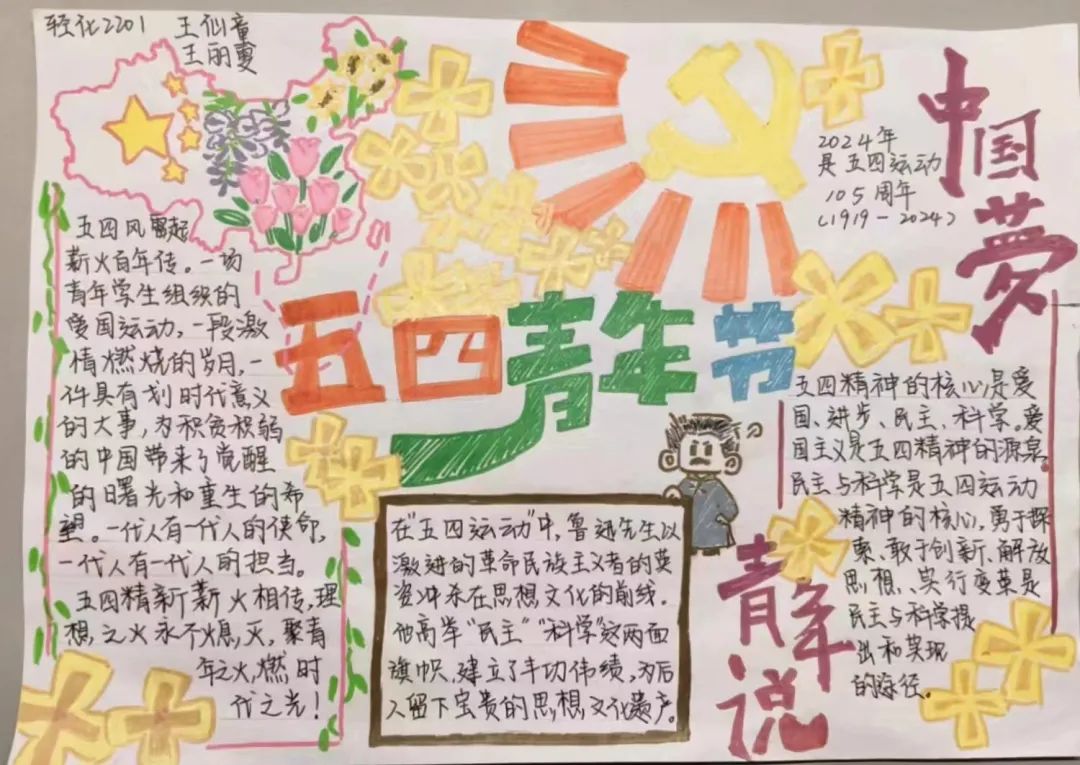 轻化2201 王仙童
王丽蔓
2024年
是五四运动
105周年
(1919-2024)
中国梦
五四青年节
五四风雷起
薪火百年传。一场
青年学生组织的
爱国运动,一段激
情燃烧的岁月,一
件具有划时代意义
的大事,为积贫积弱
的中国带来了觉醒
的曙光和重生的希
望。一代人有一代人的使命,
一代人有一代人的担当。
五四精新薪火相传,理
想之火永不熄灭,聚青
年之火,燃时
代之光!
在"五四运动"中,鲁迅先生以
激进的革命民族主义者的英
姿冲杀在思想文化的前线.
他高举"民主""科学"这两面
旗帜,建立了丰功伟绩,为后
人留下宝贵的思想文化遗产。
五四精神的核心是爱
国、进步、民主、科学。爱
国主义是五四精神的源泉
民主与科学是五四运动
精神的核心,勇于探
索、敢于创新、解放
思想、实行变革是
民主与科学提
出和实现
的途径。
青年说